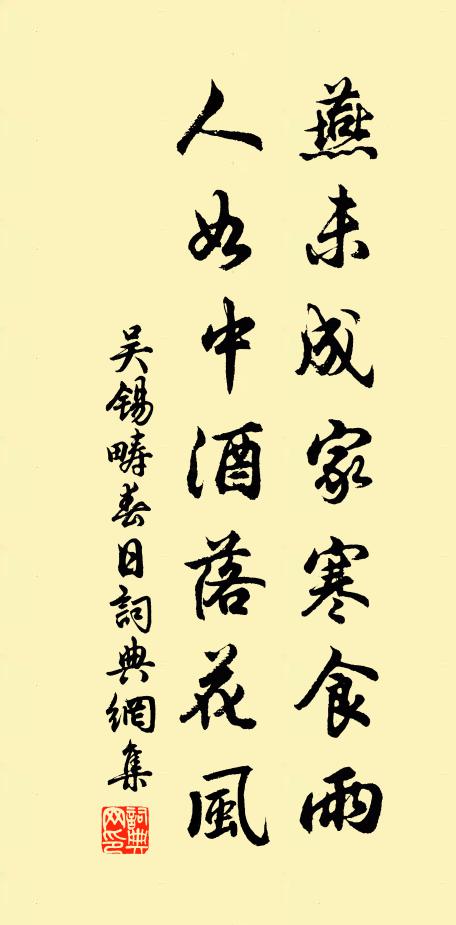 燕未成家寒食雨
人如中酒落花風
吳錫疇春日詞典網集
詞典網印